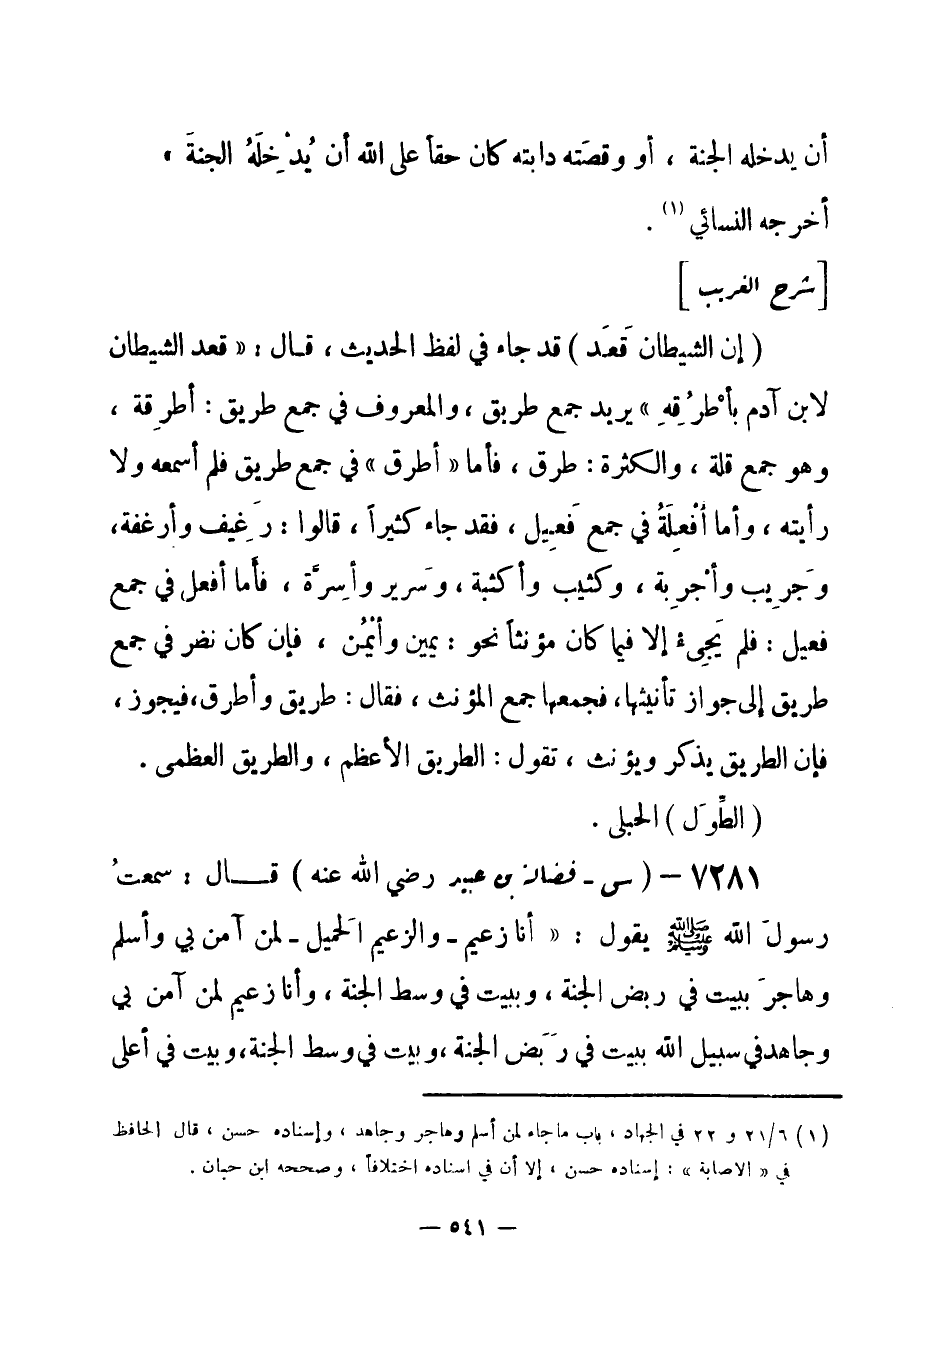 أن يدخله الجنة ، أو وقصَته دابته كان حقاً على الله أن يُدْخِلَهُ الجنةَ »
أخرجه النسائي (١) .
[ شرح الغريب ]
( إن الشيطان قَعَد ) قد جاء في لفظ الحديث ، قـال : « قعد الشيطان
لابن آدم بأطْرُقِهِ » يريد جمع طريق ، والمعروف في جمع طريق : أطرِقة ،
وهو جمع قلة ، والكثرة : طرق ، فأما « أطرق » في جمع طريق فلم أسمعه ولا
رأيته ، وأما أفْعِلَةُ في جمع فَعِيل ، فقد جاء كثيراً ، قالوا : رَغِيف وأرغفة،
وجَرِيب وأجْرِبة ، وكثيب وأكثبة ، وسَرير وأسِرَّة ، فأما أفعل في جمع
فعيل : فلم يَجِىءْ إلا فيما كان مؤنثاً نحو : يمين وأيْمُن ، فإن كان نضر في جمع
طريق إلى جواز تأنيثها، فجمعها جمع المؤنث ، فقال : طريق وأطرق،فيجوز ،
فإن الطريق يذكر ويؤنث ، تقول : الطريق الأعظم ، والطريق العظمى .
( الطِّوَل ) الحبل .
٧٢٨١ – ( س - فضالة بن عبيد رضي الله عنه ) قـــال : سمعتُ
رسولَ الله ﷺ يقول : « أنا زعيم ـ والزعيم الَحميل ـ لمن آمن بي وأسلم
وهاجرَ ببيت في ربض الجنة ، وببيت في وسط الجنة ، وأنا زعيم لمن آمن بي
وجاهد في سبيل الله ببيت في رَبَض الجنة ،وبيت في وسط الجنة،وبيت في أعلى
(١) ٢١/٦ و ٢٢ في الجهاد ، باب ماجاء لمن أسلم وهاجر وجاهد ، وإسناده حسن ، قال الحافظ
في « الاصابة » : إسناده حسن ، إلا أن في اسناده اختلافاً ، وصححه ابن حبان .
— ٥٤١ —